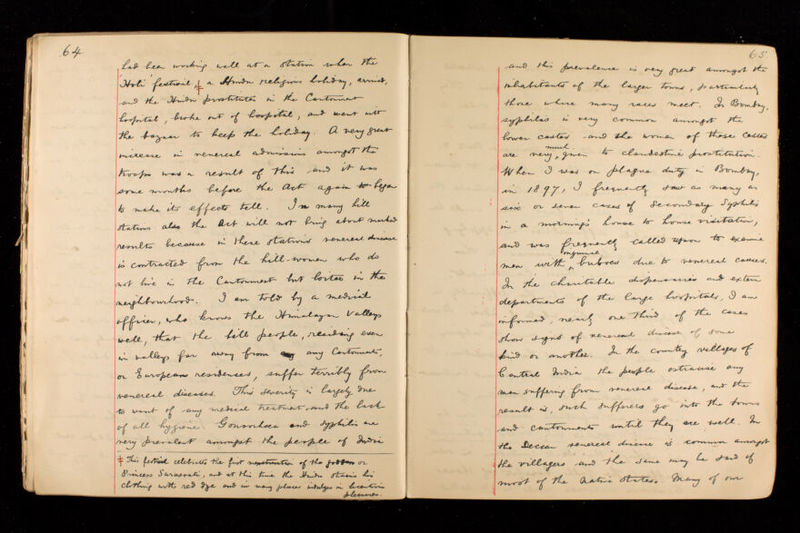 64
had been working well at a station when the
'Holi' festival, ‡ a Hindu religious holiday, arrived,
and the Hindu prostitutes in the Cantonment
hospital, broke out of hospital, and went into
the bazaar to keep the holiday. A very great
increase in venereal admissions amongst the
troops was a result of this and it was
some months before the Act again began
to make its effects tell. In many hill
stations also the Act will not bring about marked
results because in these stations venereal disease
is contracted from the hill-women who do
not live in the Cantonment but loiter in the
neighbourhood. I am told by a medical
officer, who knows the Himalayan Valleys
well, that the hill people, residing even
in valleys far away from any Cantonments,
or European residences, suffer terribly from
venereal diseases. This severity is largely due
to want of any medical treatment, and the lack
of all hygiene. Gonorrhoea and syphilis are
very prevalent amongst the people of India
‡ This festival celebrates the first menstruation of the goddess or
Princess Saraswati, and at this time the Hindu stains his
clothing with red dye and in many places indulges in licentious
pleasures.
65
and this prevalence is very great amongst the
inhabitants of the larger towns, particularly
those where many races meet. In Bombay,
syphilis is very common amongst the
lower castes and the women of these castes
are very much given to clandestine prostitution.
When I was on plague duty in Bombay,
in 1897, I frequently saw as many as
six or seven cases of Secondary Syphilis
in a morning's house to house visitation,
and was frequently called upon to examine
men with inguinal buboes due to venereal causes.
In the charitable dispensaries and extern
departments of the large hospitals, I am
informed, nearly one third of the cases
show signs of venereal disease of some
kind or another. In the country villages of
Central India the people ostracise any
man suffering from venereal disease, and the
result is, such sufferers go into the towns
and cantonments until they are well. In
the Deccan venereal disease is common amongst
the villagers and the same may be said of
most of the native states. Many of our